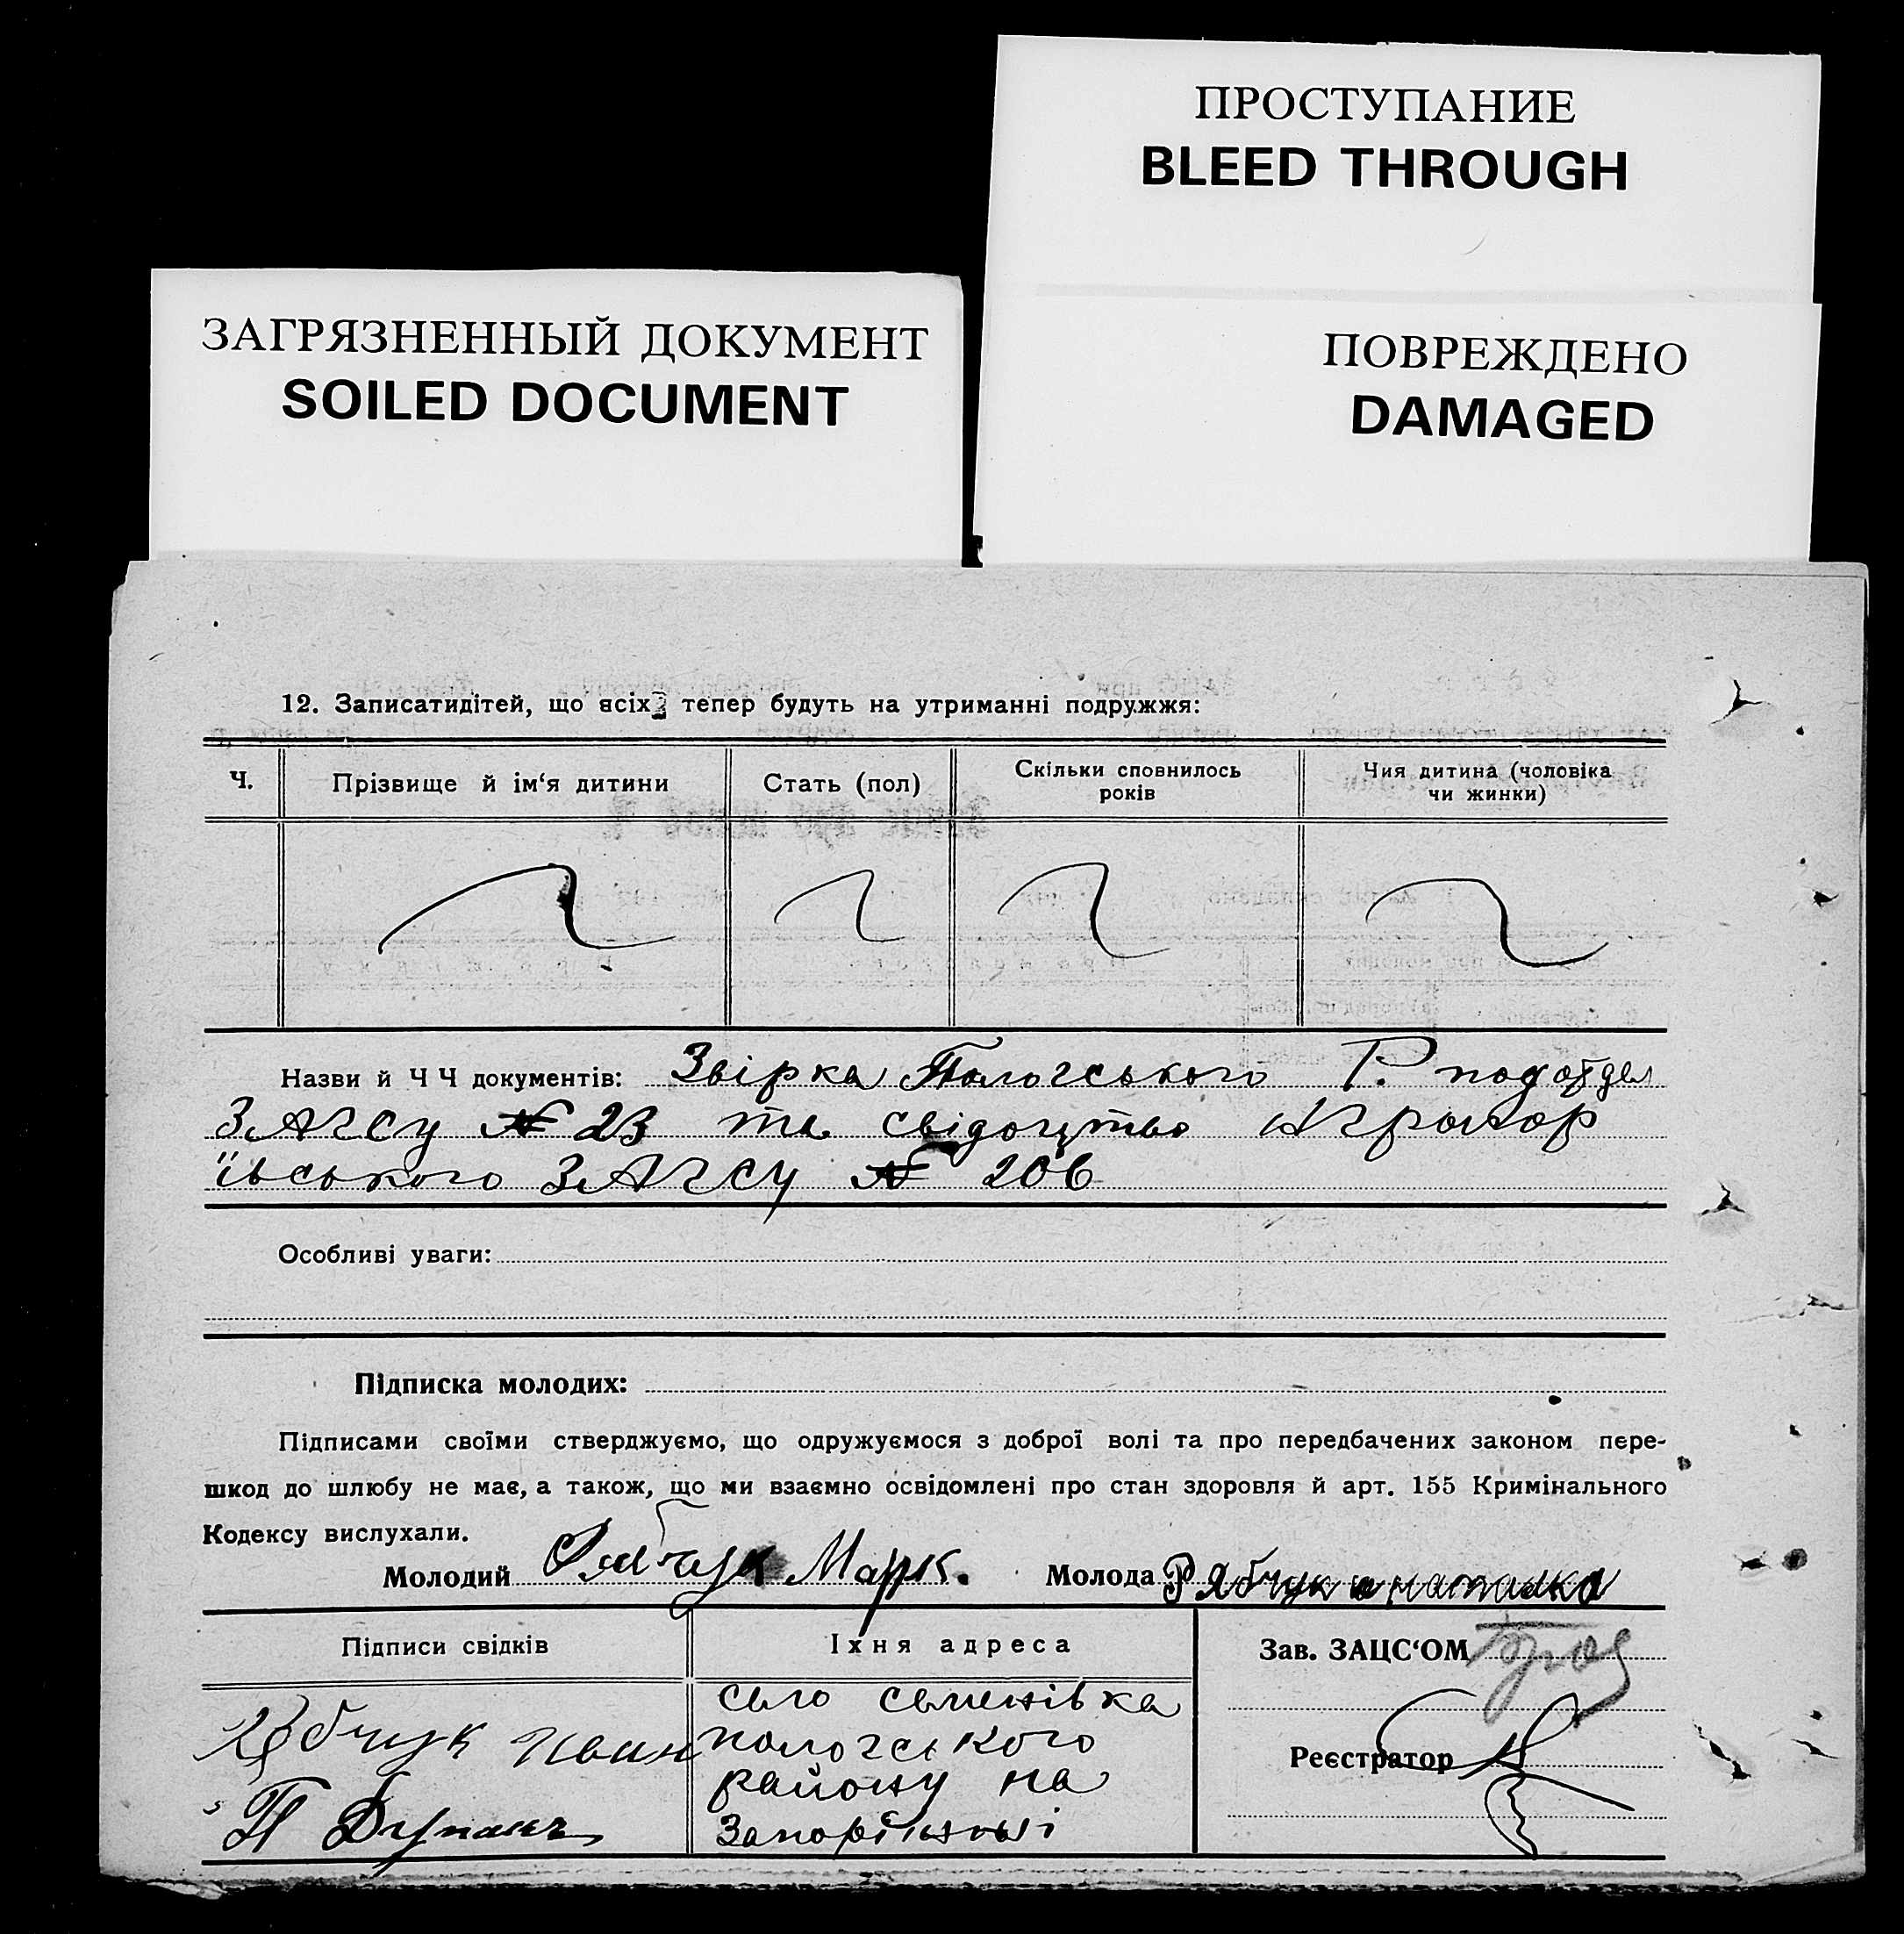 ПРОСТУПАНИЕ
BLEED THROUGH
ЗАГРЯЗНЕННЫЙ ДОКУМЕНТ
SOILED DOCUMENT
ПОВРЕЖДЕНО
DAMAGED
12. Записатидітей, що всіх тепер будуть на утриманні подружжя:
Ч.
Прізвище й ім‘я дитини
Стать (пол)
Скільки сповнилось
років
Чия дитина (чоловіка
чи жинки)
Назви й Ч Ч документів: Звірка Пологського Р. подотдел
ЗАГСу № 23 та свідоцтво
ївського ЗАГСу № 206
Особливі уваги:
Підписка молодих:
Підписами своїми стверджуємо, що одружуємося з доброї волі та про передбачених законом пере-
шкод до шлюбу не має, а також, що ми взаємно освідомлені про стан здоровля й арт. 155 Кримінального
Кодексу вислухали.
Молодий Рябчук Марк. Молода Рябчук наталка
Підписи свідків
Їхня адреса
Зав. ЗАЦС‘ОМ
Рябчук Иван
село семенівка
пологського
району на
Запоріжжі
Реєстратор